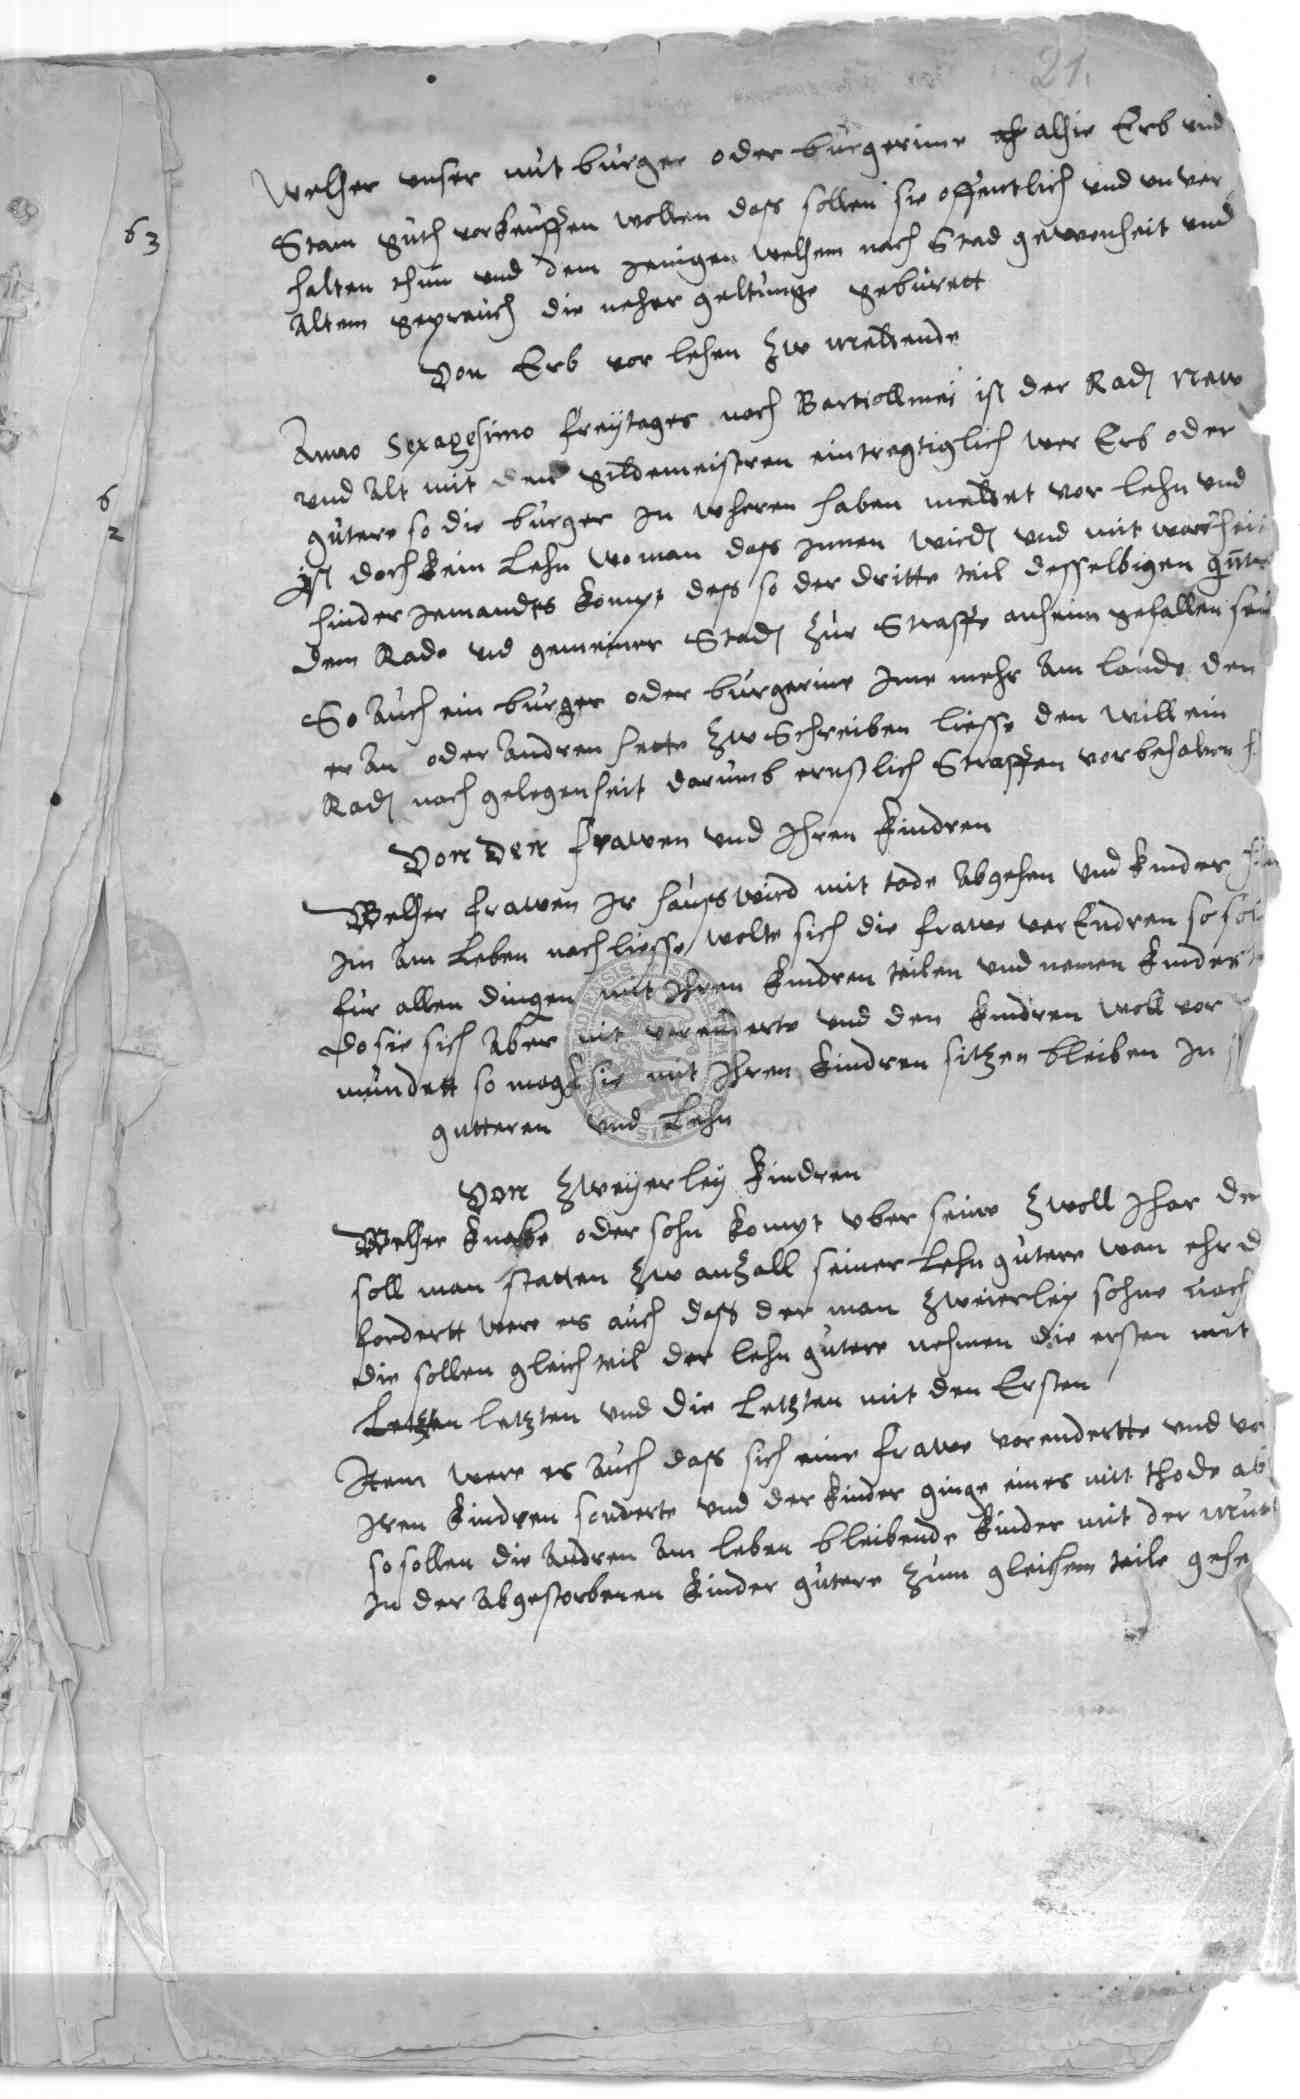 21.
Welher vnser mit burger oder burgerinne alhie Erb vnd
Stam guth vorkeuffen wollen dass sollen sie offentlich vnd vnver
halten thun vnd dem jenigen welhem nach Stad gewonheit vnd
Altem geprauch die neher geltunge geburett
Von Erb vor lehen zw meldende
63
Anno Sexagesimo freytages nach Bartiollmei ist der Radt New
vnd Alt mit den gildemeistren eintregtiglich wer Erb oder
gutere so die burger in wheren haben meldet vor lehn vnd
6
2
Ist doch kein Lehn wo man dass innen wird vnd mit warheit
hinder jemandts kompt dess so der dritte teil desselbigen gutes
dem Rade vnd gemeiner Stadt zur Straffe anheim gefallen sein
So Auch ein burger oder burgerine jme mehr Am lande den
er An oder Andren hette zw Schreiben liesse den will ein
Radt nach gelegenheit darumb ernstlich Straffen vorbehalten
Von Den frawen vnd Ihren kindren
Welher frawen ir hauswird mit tode Abgehen vnd kinder
im Am Leben nach liesse wolte sich die frawe verEndren so sol
fur allen dingen mit Ihren kindren teilen vnd nemen kindes
Do sie sich Aber nit verenderte vnd den kindren woll vor
mundett so magk sie mit Ihren kindren sitzen bleiben In
gutteren vnd Lehn
Von zweyerley kindren
Welher knabe oder sohn kompt vber seine zwolf Jhar de
soll man statten zw anzall seiner Lehn gutere wan ehr d
fordertt were es auch dass der man zweierley sohne nach
die sollen gleich teil der lehn gutere nehmen die ersten mit
Letzten letzten vnd die Letzten mit den Ersten
Item were es Auch dass sich eine frawe vorendertte vnd vo
iren kindren sonderte vnd der kinder ginge eines mitt thode ab
so sollen die Andren Am leben bleibende kinder mit der mut
In der Abgestorbenen kinder gutere zum gleichem teile gehe